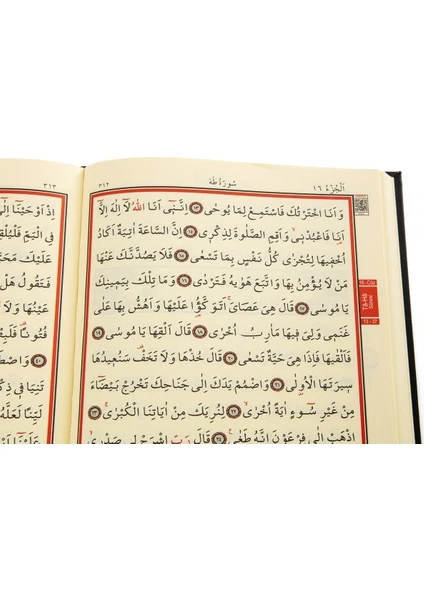 اَلْجُزْءُ ١٦
سُورَةُ طٰهٰ
٣١٢
وَاَنَا اخْتَرْتُكَ فَاسْتَمِعْ لِمَا يُوحٰى ﴿١٣﴾ اِنَّنٓى اَنَا اللّٰهُ لَٓا اِلٰهَ اِلَّٓا
اَنَا فَاعْبُدْنٖى وَاَقِمِ الصَّلٰوةَ لِذِكْرٖى ﴿١٤﴾ اِنَّ السَّاعَةَ اٰتِيَةٌ اَكَادُ
اُخْفٖيهَا لِتُجْزٰى كُلُّ نَفْسٍ بِمَا تَسْعٰى ﴿١٥﴾ فَلَا يَصُدَّنَّكَ عَنْهَا
مَنْ لَا يُؤْمِنُ بِهَا وَاتَّبَعَ هَوٰيهُ فَتَرْدٰى ﴿١٦﴾ وَمَا تِلْكَ بِيَمٖينِكَ
يَا مُوسٰى ﴿١٧﴾ قَالَ هِىَ عَصَاىَ اَتَوَكَّؤُ۬ا عَلَيْهَا وَاَهُشُّ بِهَا عَلٰى
غَنَمٖى وَلِىَ فٖيهَا مَاٰرِبُ اُخْرٰى ﴿١٨﴾ قَالَ اَلْقِهَا يَا مُوسٰى ﴿١٩﴾
فَاَلْقٰيهَا فَاِذَا هِىَ حَيَّةٌ تَسْعٰى ﴿٢٠﴾ قَالَ خُذْهَا وَلَا تَخَفْ سَنُعٖيدُهَا
سٖيرَتَهَا الْاُولٰى ﴿٢١﴾ وَاضْمُمْ يَدَكَ اِلٰى جَنَاحِكَ تَخْرُجْ بَيْضَٓاءَ
مِنْ غَيْرِ سُٓوءٍ اٰيَةً اُخْرٰى ﴿٢٢﴾ لِنُرِيَكَ مِنْ اٰيَاتِنَا الْكُبْرٰى ﴿٢٣﴾
اِذْهَبْ اِلٰى فِرْعَوْنَ اِنَّهُ طَغٰى ﴿٢٤﴾ قَالَ رَبِّ اشْرَحْ لٖى صَدْرٖى
16. Cüz
Tâ-Hâ
Sûresi
13 - 37
٣١٣
اِذْ اَوْحَيْنَٓا اِلٰٓى
فِى الْيَمِّ فَلْيُلْقِهِ
عَلَيْكَ مَحَبَّةً
فَتَقُولُ هَلْ
عَيْنُهَا وَلَا
فُتُونًا فَلَبِثْتَ
﴿٤٠﴾ وَاصْطَنَعْتُكَ
تَنِيَا فٖى ذِكْرٖى
لَيِّنًا لَعَلَّهُ
عَلَيْنَٓا